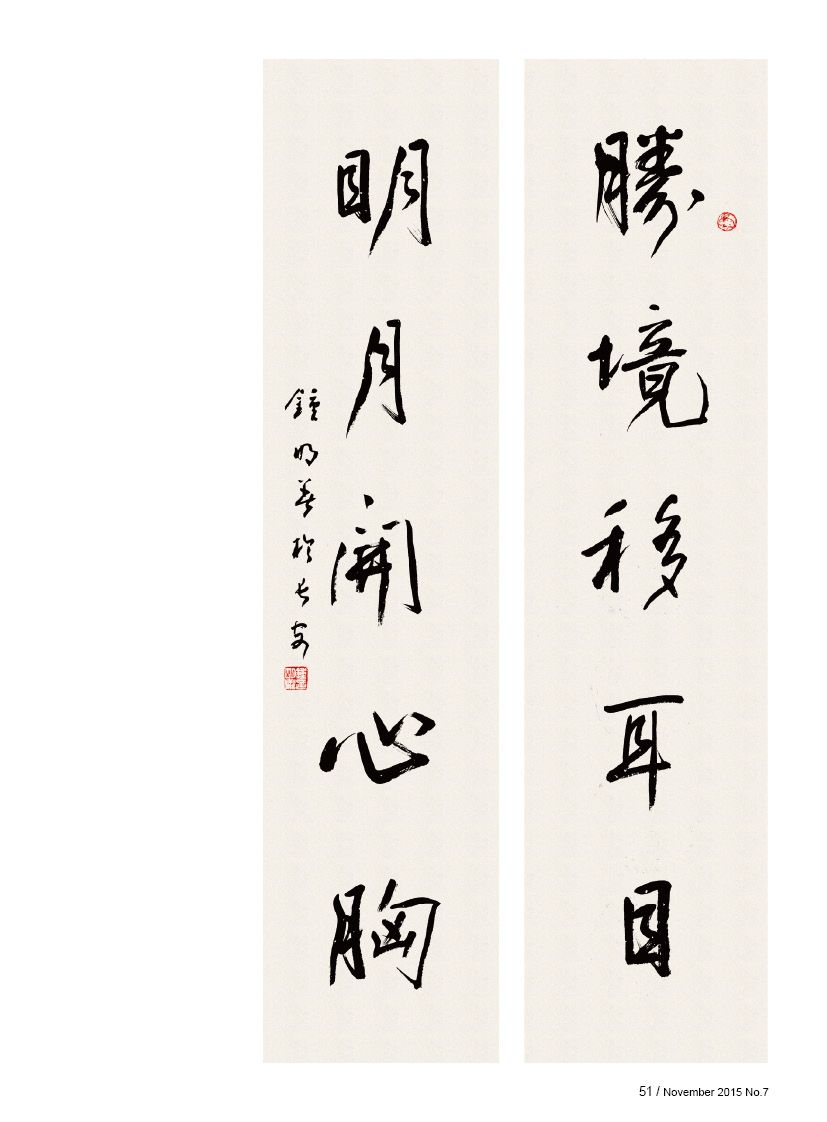 勝境移耳目
明月開心胸
鐘明善於长安
51 / November 2015 No.7